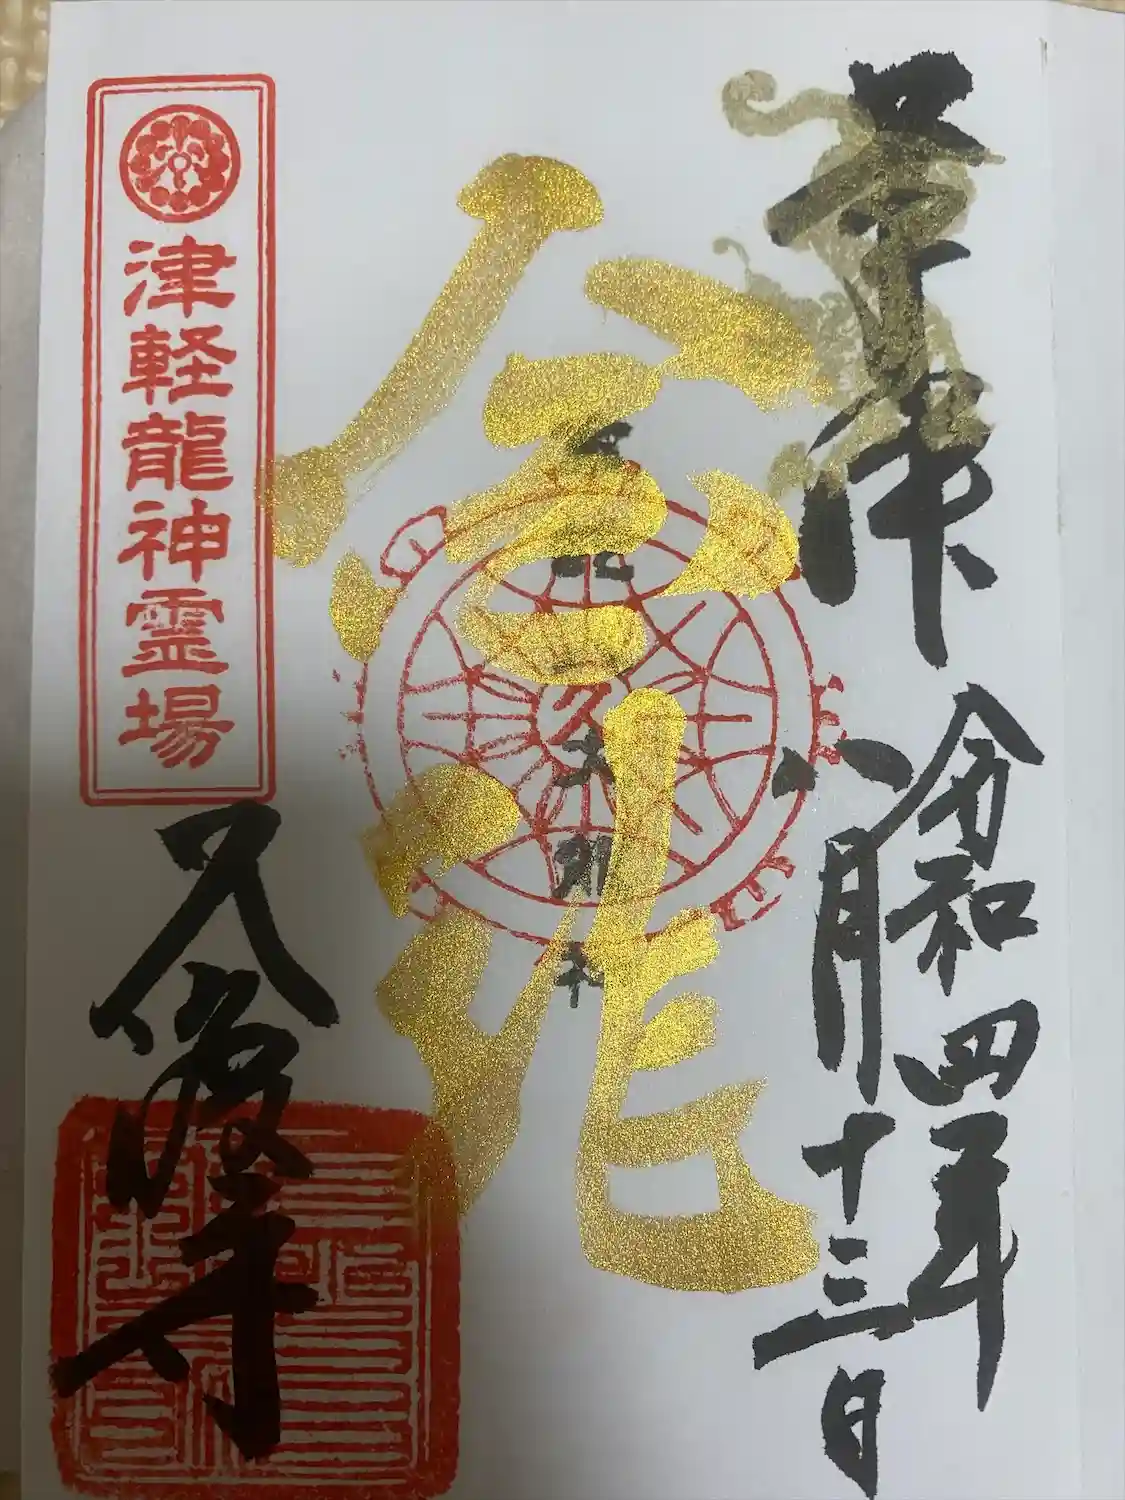 奉拝
令和四年
八月十三日
金龍
津軽龍神霊場
久渡寺